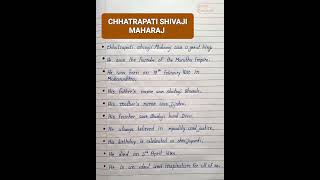 CHHATRAPATI SHIVAJI
MAHARAJ
Chhatrapati Shivaji Maharaj was a great king.
He was the founder of the Maratha Empire.
He was born on 19th February 1630 in
Maharashtra.
His father's name was Shahaji Bhonsle.
His mother's name was Jijabai.
His teacher was Dadoji Kond Dev.
He always believed in equality and justice.
His birthday is celebrated as Shivjayanti.
He died on 3rd April 1680.
He is an ideal and inspiration for all of us.